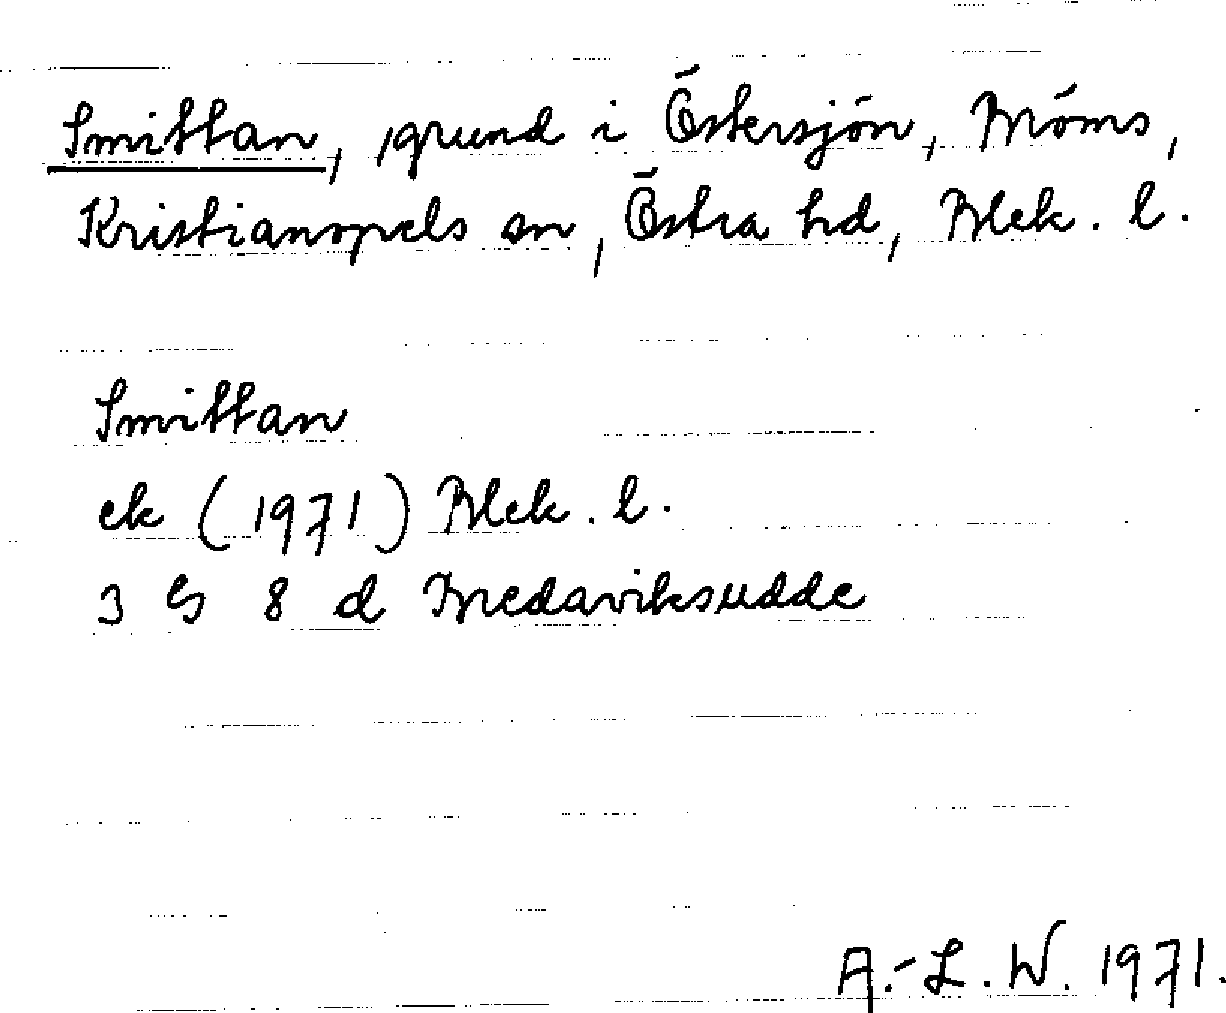 Smittan, grund i Östersjön, Bröms,
Kristianopels sn, Östra hd, Blek. l.
Smittan
ek (1971) Blek. l.
3 G 8 d Bredaviksudde
A.-L. W. 1971.